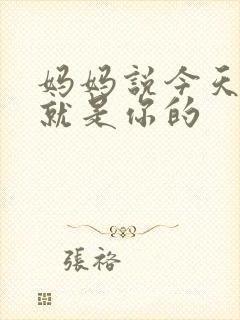 妈妈説今天
就是你的
張袼